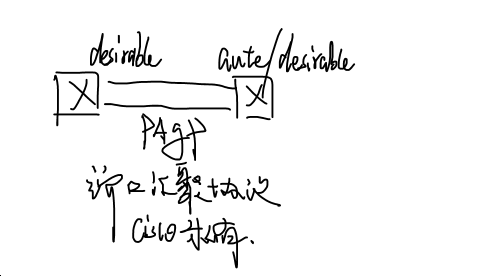 desirable
aute/desirable
PAgp
端口汇聚协议
Cisco 私有.